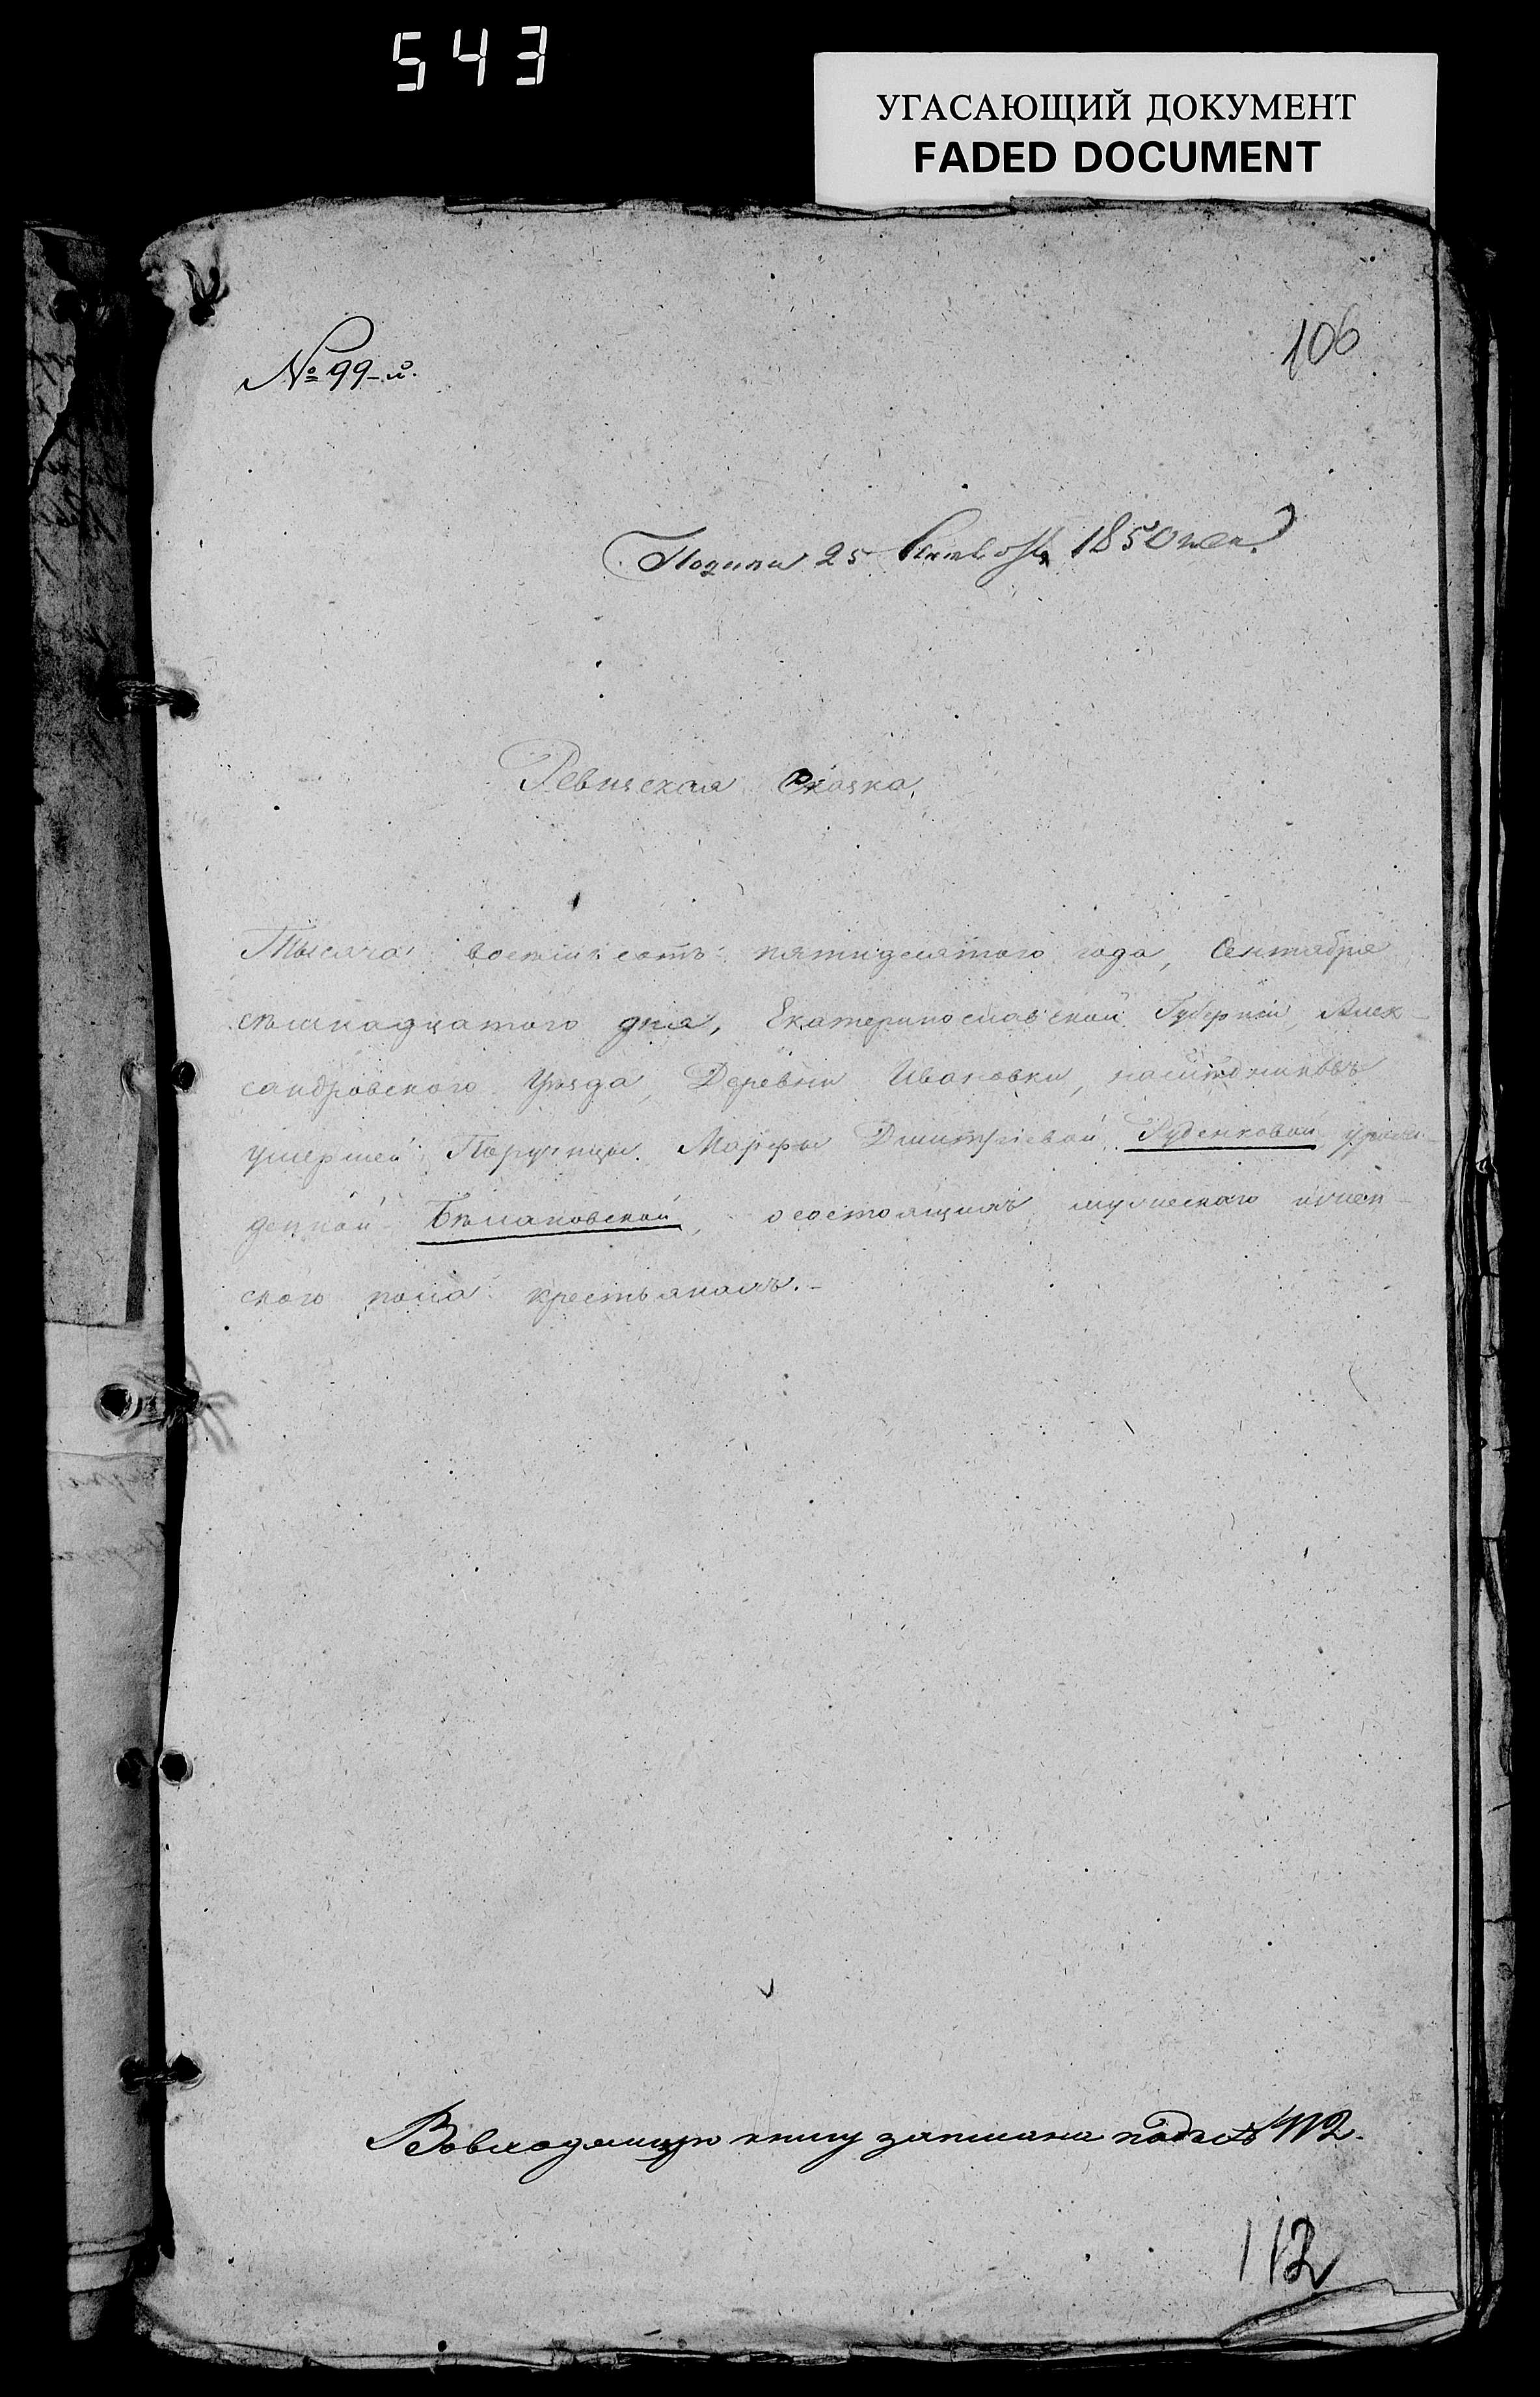 543
УГАСАЮЩИЙ ДОКУМЕНТ
FADED DOCUMENT
№ 99-й.
106
25 1850
Ревизская Сказка,
Тысяча восемь сотъ пятидесятого года, Сентября
семнадцатого дня, Екатеринославской Губерніи, Алек-
сандровского Уѣзда, Деревни Ивановки, наслѣдниковъ
умершей Порутчицы Марфы Дмитріевой Руденковой, урож-
денной Бѣлаковской, о состоящихъ мужеска и жен-
ского пола крестьянахъ.-
Во входящую книгу записана подъ № 112.
112